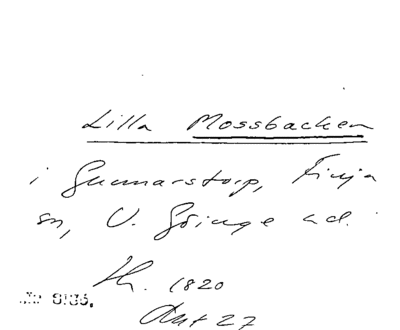 Lilla Mossbacken
i Gunnarstorp, Finja
sn, V. Göinge hd.
1820
Ant 27